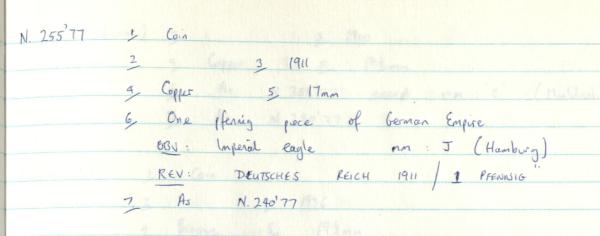 N. 255'77 1/ Coin
2/ 3/ 1911
4/ Copper 5/ 17mm
6/ One pfennig piece of German Empire
OBV: Imperial eagle mm: J (Hamburg)
REV: DEUTSCHES REICH 1911 / 1 PFENNIG
7/ As N.240'77